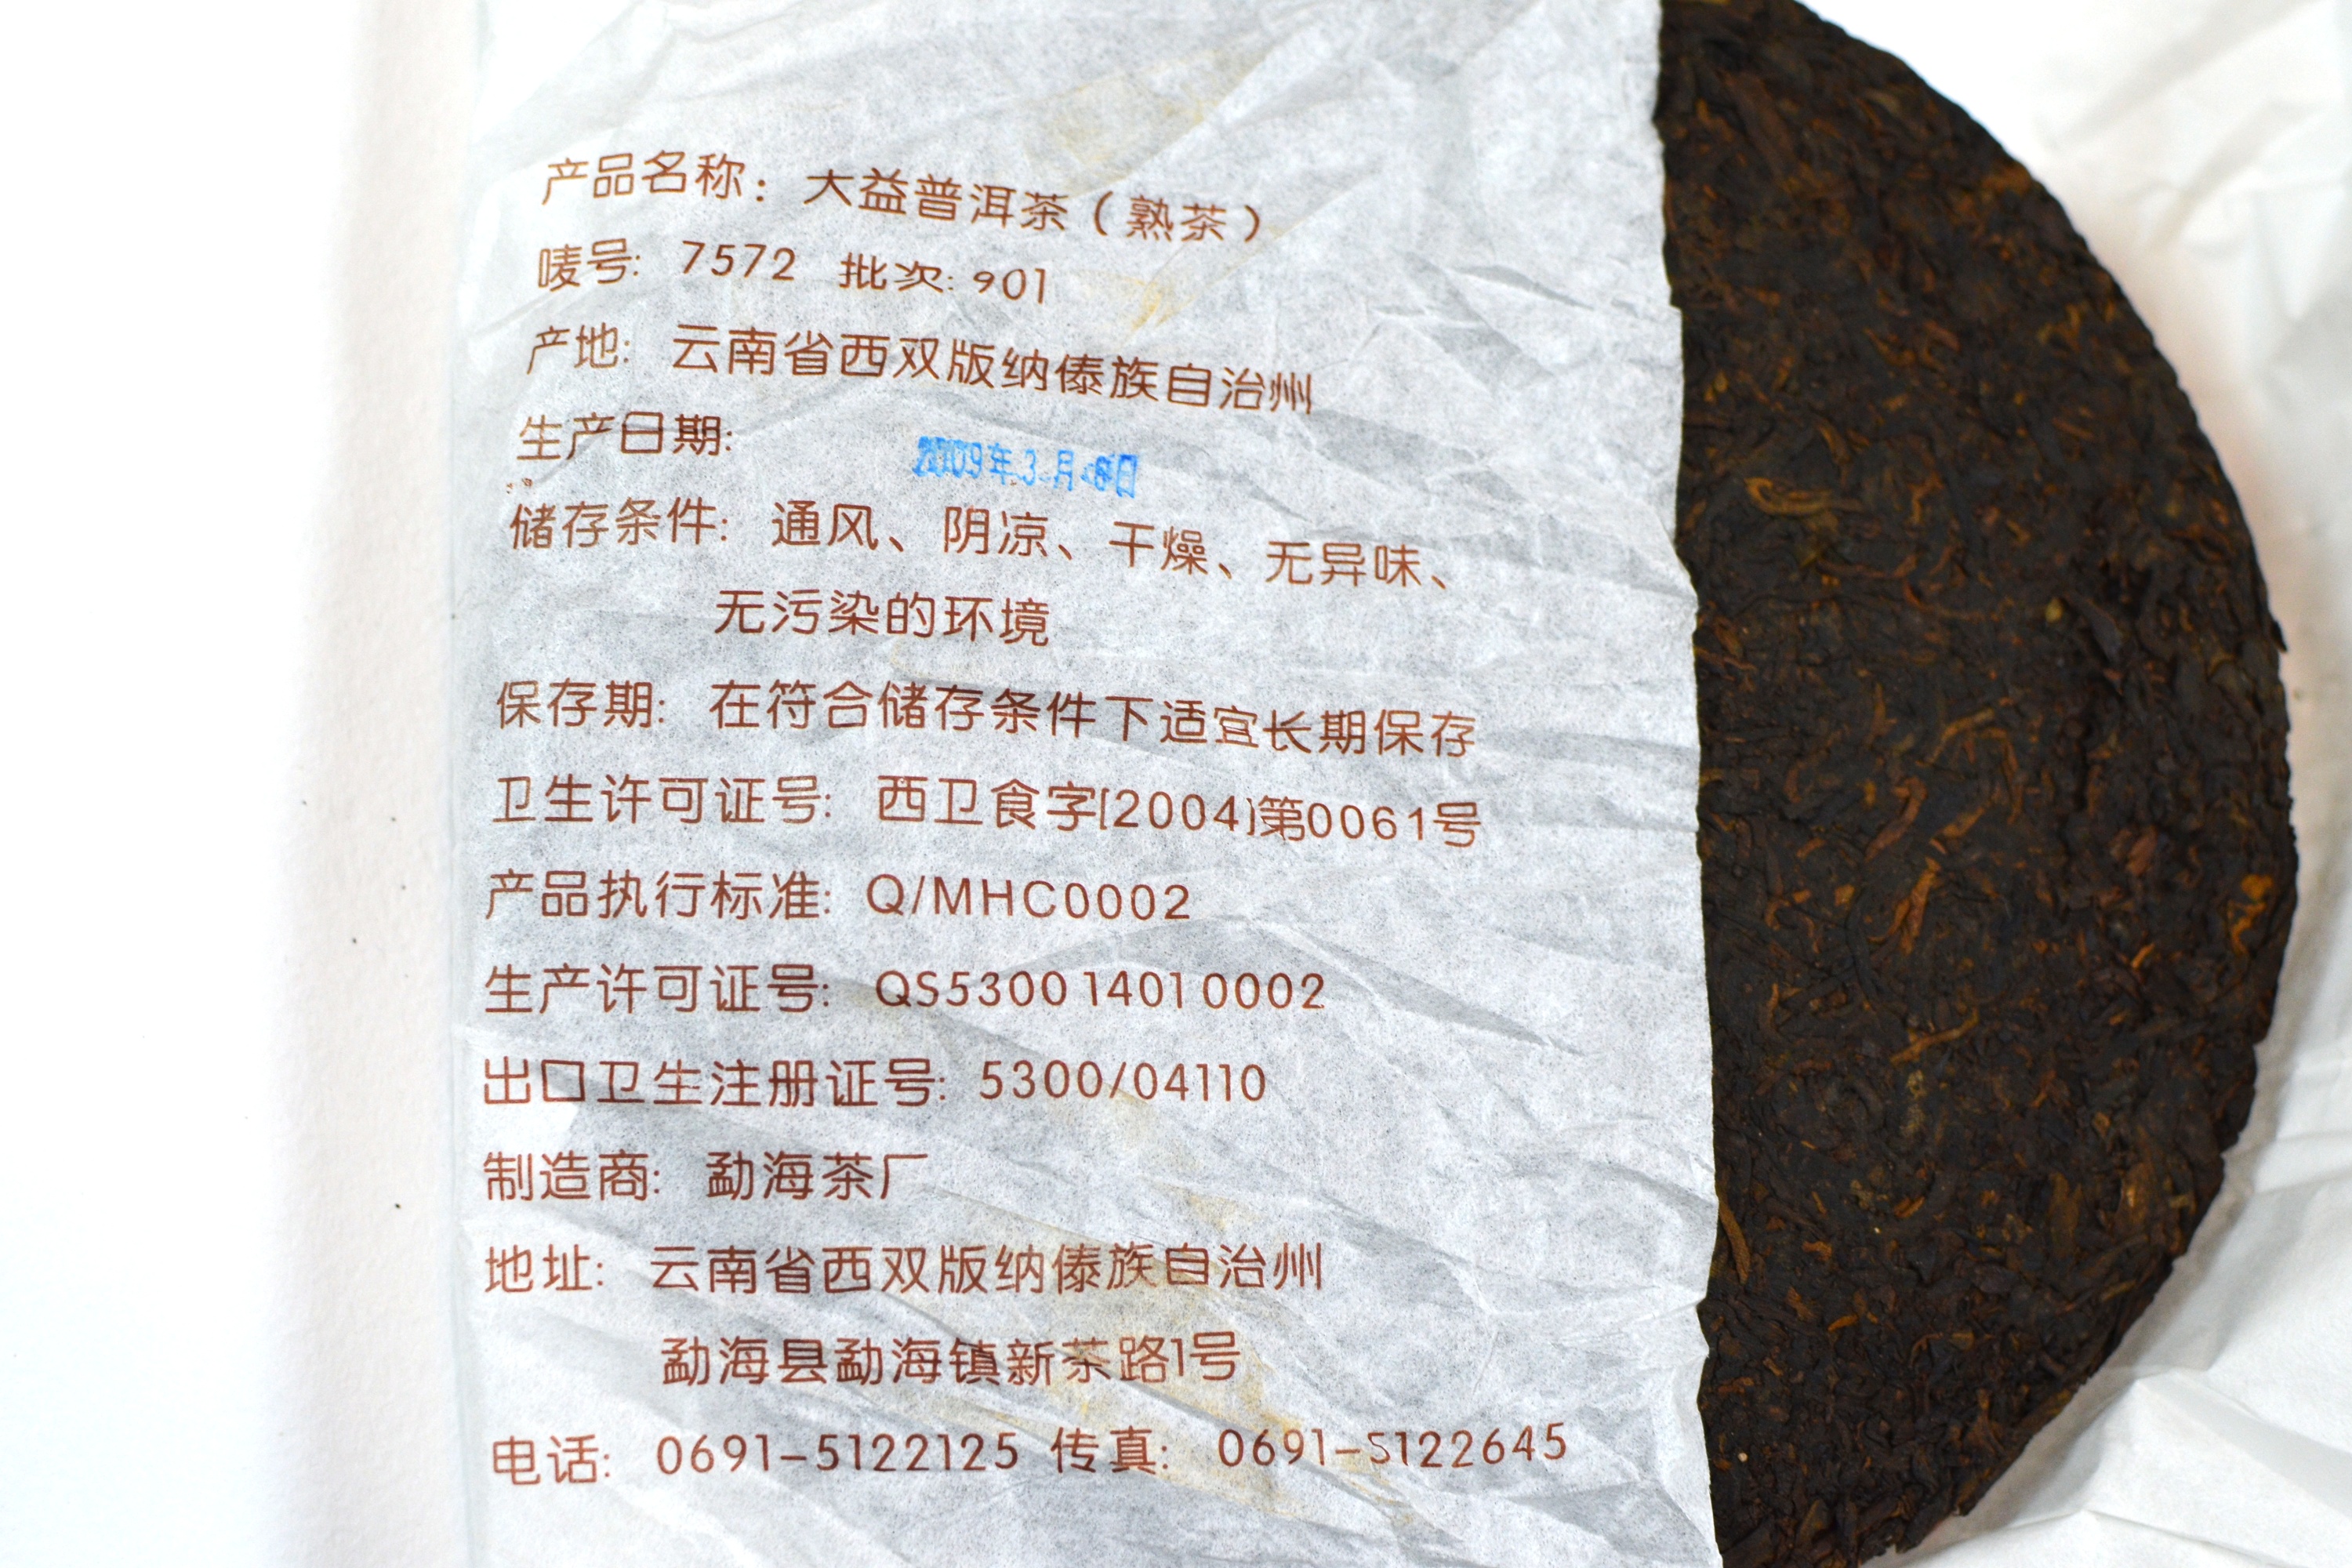 产品名称：大益普洱茶（熟茶）
唛号：7572 批次：901
产地：云南省西双版纳傣族自治州
生产日期：2009年3月6日
储存条件：通风、阴凉、干燥、无异味、
无污染的环境
保存期：在符合储存条件下适宜长期保存
卫生许可证号：西卫食字[2004]第0061号
产品执行标准：Q/MHC0002
生产许可证号：QS530014010002
出口卫生注册证号：5300/04110
制造商：勐海茶厂
地址：云南省西双版纳傣族自治州
勐海县勐海镇新茶路1号
电话：0691-5122125 传真：0691-5122645